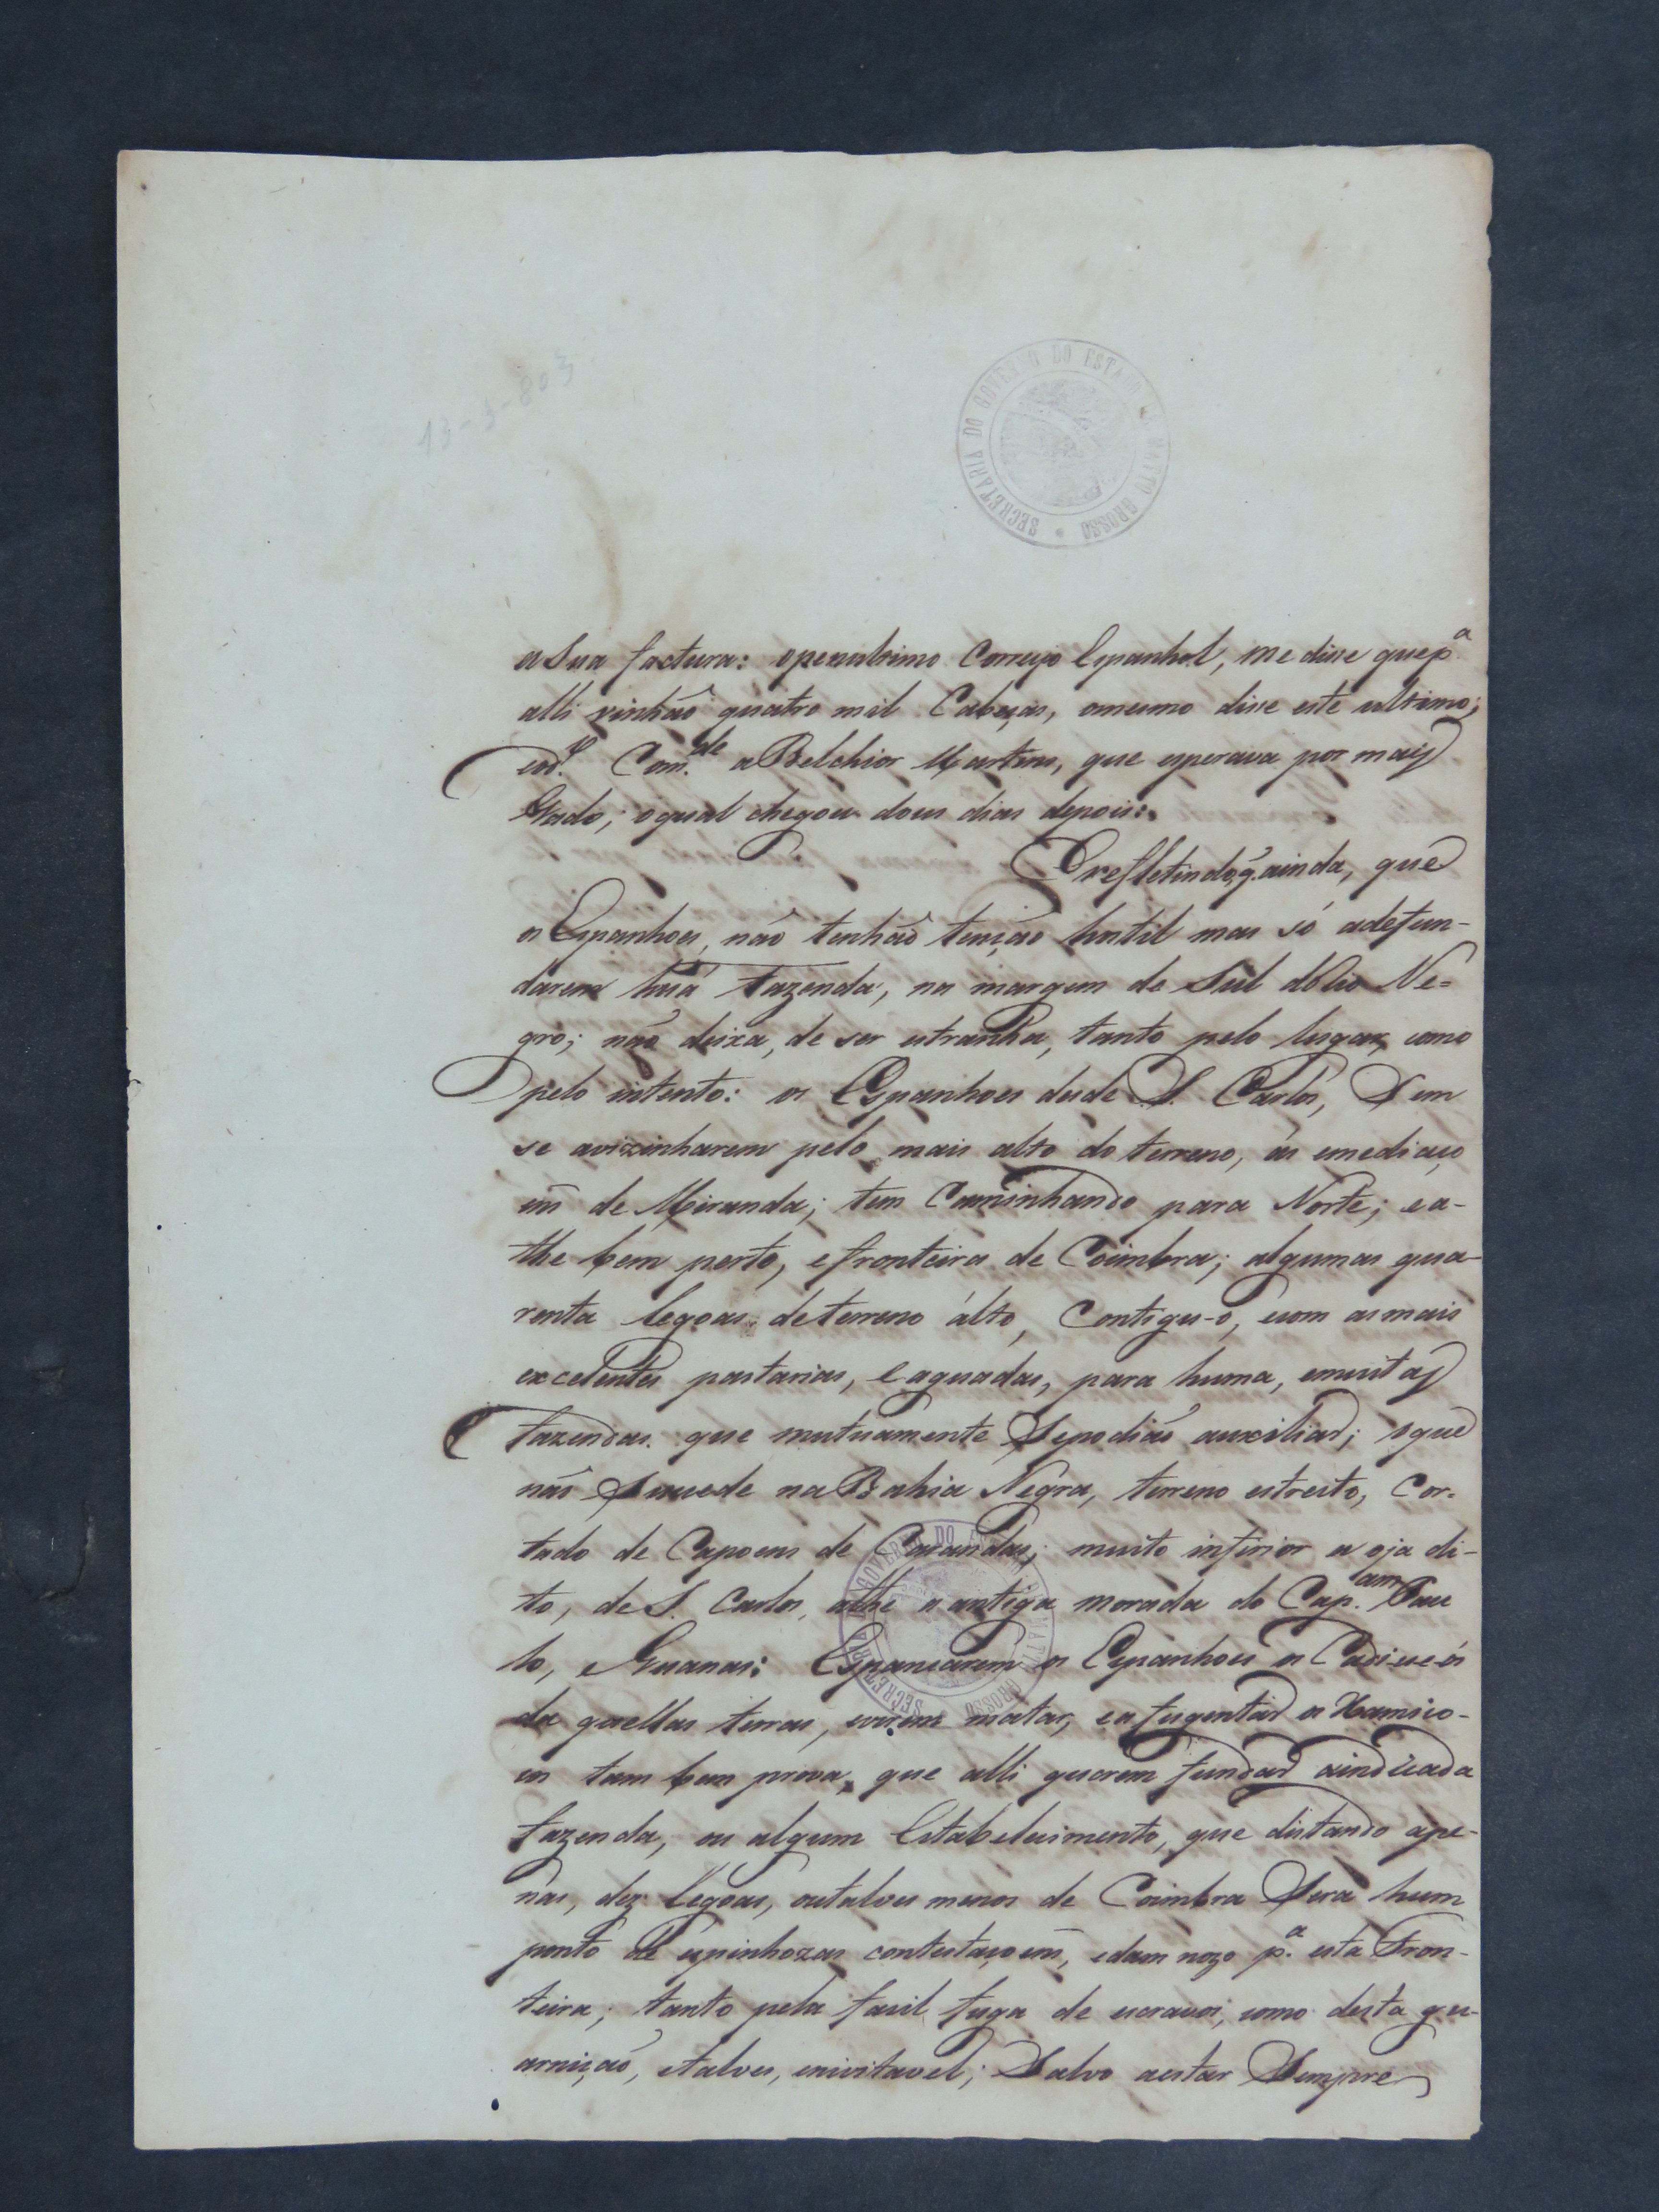 13-3-803
SECRETARIA DO GOVERNO DO ESTADO DE MATTO GROSSO
a Sua factura: openultimo Correyo Espanhol, me disse que p.ª
alli vinhaõ quatro mil Cabeças, omesmo disse este ultimo;
eod.º Com.de a Belchior Martins, que esperava por mais
Gado; oqual chegou dous dias depois:
E refletindo, q. ainda, que
os Espanhoes, naõ tenhaõ tençaõ hostil mas só adefun-
darem huã fazenda, na margem de Sul do Rio Ne=
gro; naõ deixa, de ser estranha, tanto pelo lugar, como
pelo intento: os Espanhoes desde S. Carlos, Sem
se avizinharem pelo mais alto do terreno, ás emediaço
ens de Miranda; tem Caminhando para Norte; e a-
the bem perto, efronteira de Coimbra; algumas qua-
renta legoas de terreno álto, Contigu-o, com as mais
excelentes pastarias, e aguadas, para huma, emuitas
fazendas. que mutuamente Sepodiaõ auxiliar; oque
naõ Sucede na Bahia Negra, terreno estreito, Cor-
tado de Capoens de Carandas; muito inferior a oja di-
to, de S. Carlos, athe a antiga morada do Cap.am Pau
lo, e Guanas: Espancarem os Espanhoes os Cadiue-ós
da quellas terras, evirem matar, eafugentar os Xamico-
cos tam bem prova, que alli querem fundar aindicada
fazenda, ou algum Estabelecimento, que distando ape-
nas, dez legoas, outalves menos de Coimbra Será hum
ponto de espinhozas contestaçoens, edam nozo p.ª esta Fron-
teira; tanto pela facil fuga de escravos, como desta gu-
arniçaõ, etalves, enivitavel; Salvo aestar Sempre
SECRETARIA DO GOVERNO DO ESTADO DE MATTO GROSSO